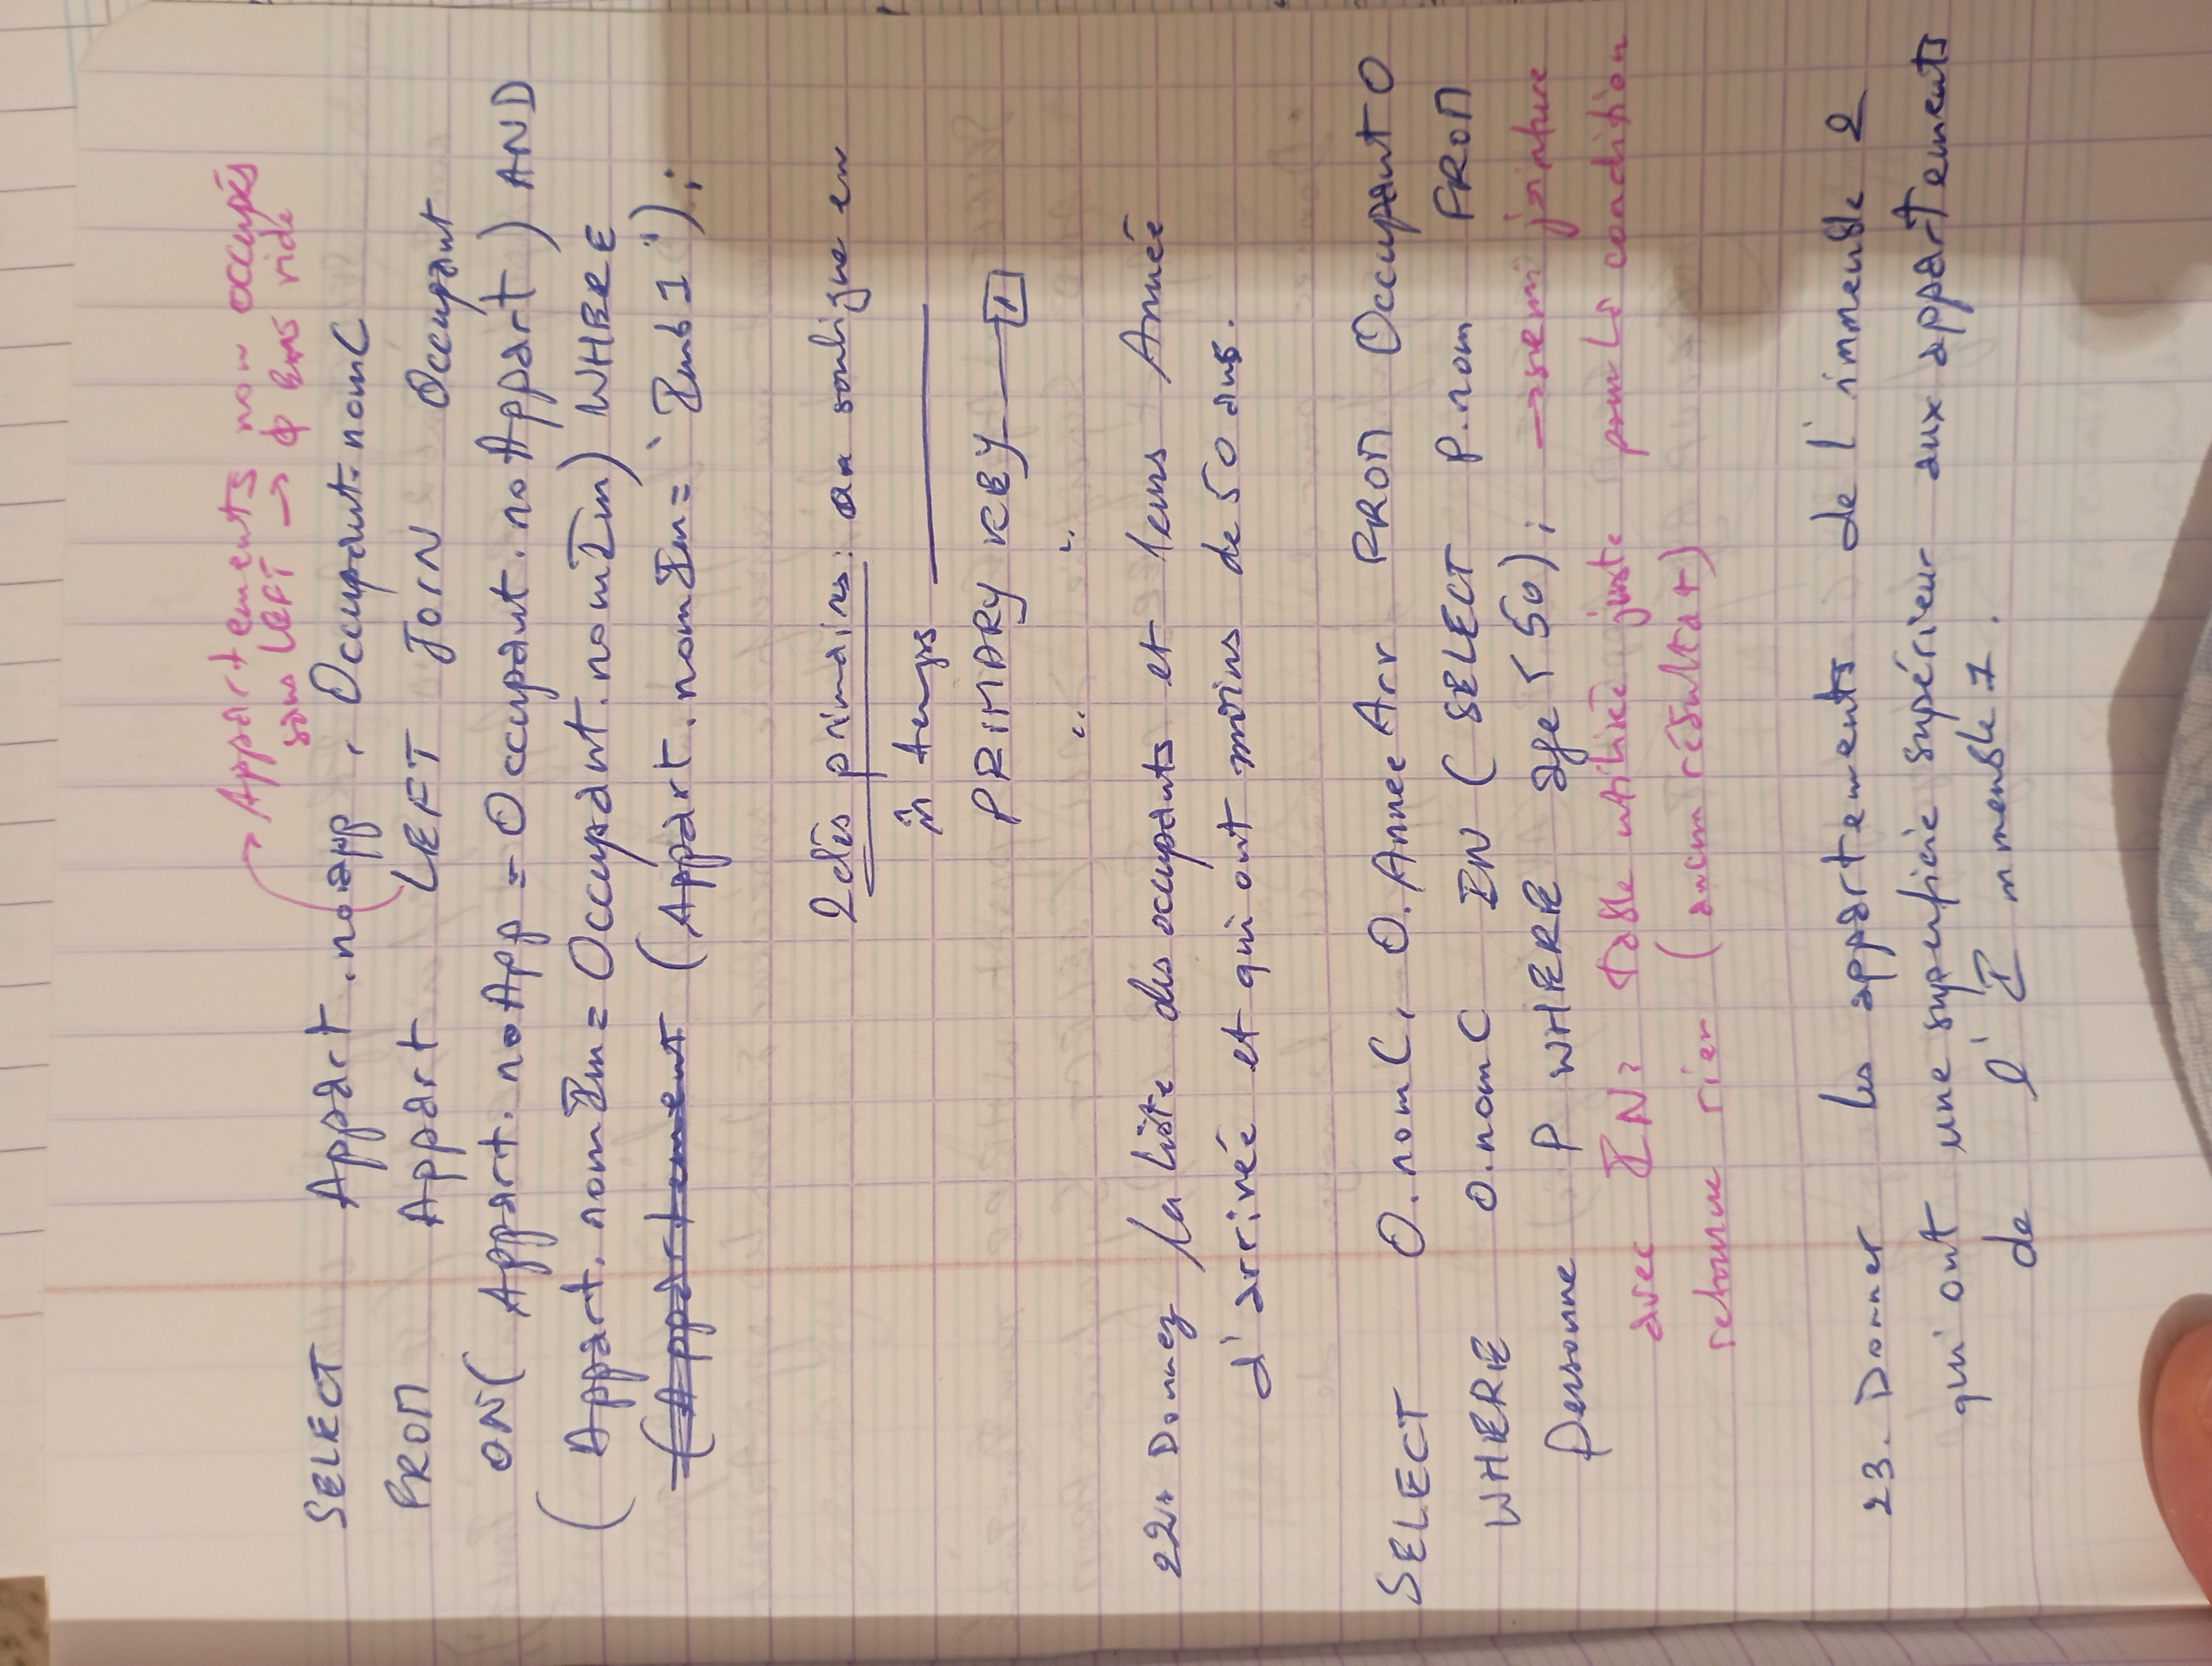 Appartements non occupés
sans LEFT → ϕ Ens vide
SELECT Appart.noapp, Occupant.nomC
FROM Appart LEFT JOIN Occupant
ON( Appart.noApp = Occupant.noAppart ) AND
( Appart.nomIm = Occupant.nomIm) WHERE
(Appartement (Appart.nomIm = 'Imb1');
2 clés primaires : on souligne en
m̂ temps
PRIMARY KEY 1
" "
22. Donnez la liste des occupants et leurs Année
d'arrivée et qui ont moins de 50 ans.
SELECT O.nomC, O.AnneeArr FROM Occupant O
WHERE O.nomC IN (SELECT P.nom FROM
Personne P WHERE age < 50); → semi jointure
avec IN: table utilisée juste pour la condition
retourne rien (aucun résultat)
23. Donner les appartements de l'immeuble 2
qui ont une superficie supérieur aux appartements
de l'Immeuble 1.